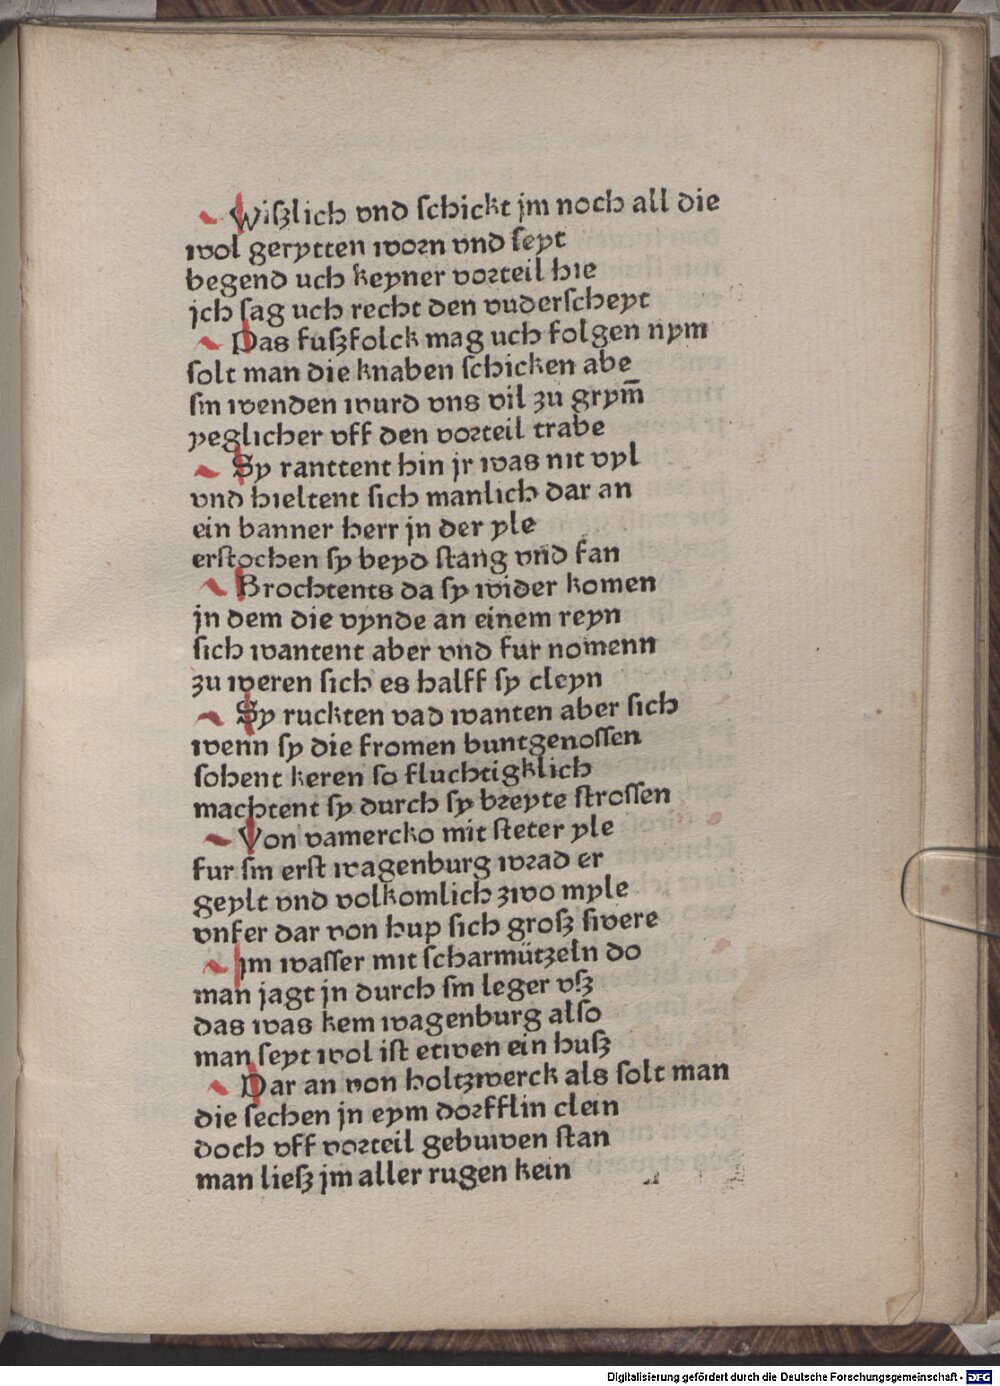 Wißlich vnd schickt jm noch all die
wol gerytten worn vnd seyt
begend uch keyner vorteil hie
jch sag uch recht den vuderscheyt
Das fußfolck mag uch folgen nym
solt man die knaben schicken abe
sm wenden wurd vns vil zu grym̄
yeglicher vff den vorteil trabe
Sy ranttent hin jr was nit vyl
vnd hieltent sich manlich dar an
ein banner herr jn der yle
erstochen sy beyd stang vnd fan
Brochtents da sy wider komen
jn dem die vynde an einem reyn
sich wantent aber vnd fur nomenn
zu weren sich es halff sy cleyn
Sy ruckten vad wanten aber sich
wenn sy die fromen buntgenossen
sohent keren so fluchtigklich
machtent sy durch sy breyte strossen
Von vamercko mit steter yle
fur sm erst wagenburg wrad er
geylt vnd volkomlich zwo myle
vnfer dar von hup sich groß swere
Im wasser mit scharmützeln do
man jagt jn durch sm leger vß
das was kem wagenburg also
man seyt wol ist etwen ein huß
Dar an von holtzwerck als solt man
die sechen jn eym dorfflin clein
doch vff vorteil gebuwen stan
man ließ jm aller rugen kein
Digitalisierung gefördert durch die Deutsche Forschungsgemeinschaft - DFG